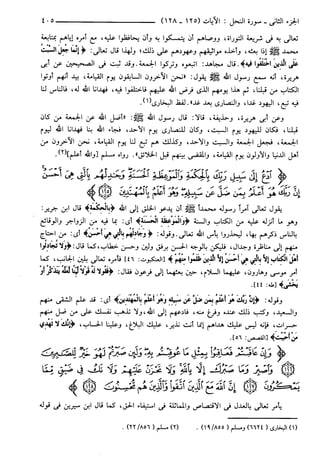 الجزء الثاني - سورة النحل: الآيات (١٢٥ - ١٢٨)
٤٠٥
تعالى به في شريعة التوراة، ووصاهم أن يتمسكوا به وأن يحافظوا عليه، مع أمره إياهم بمتابعة
محمد ﷺ إذا بعثه، وأخذه مواثيقهم وعهودهم على ذلك؛ ولهذا قال تعالى: ﴿إِنَّمَا جُعِلَ السَّبْتُ
عَلَى الَّذِينَ اخْتَلَفُوا فِيهِ﴾. قال مجاهد: اتبعوه وتركوا الجمعة. وقد ثبت في الصحيحين عن أبي
هريرة، أنه سمع رسول الله ﷺ يقول: «نحن الآخرون السابقون يوم القيامة، بيد أنهم أوتوا
الكتاب من قبلنا، ثم هذا يومهم الذي فرض الله عليهم فاختلفوا فيه، فهدانا الله له، فالناس لنا
فيه تبع، اليهود غدا، والنصارى بعد غد». لفظ البخاري(١).
وعن أبي هريرة، وحذيفة، قالا: قال رسول الله ﷺ: «أضل الله عن الجمعة من كان
قبلنا، فكان لليهود يوم السبت، وكان للنصارى يوم الأحد، فجاء الله بنا فهدانا الله ليوم
الجمعة، فجعل الجمعة والسبت والأحد، وكذلك هم تبع لنا يوم القيامة، نحن الآخرون من
أهل الدنيا والأولون يوم القيامة، والمقضي بينهم قبل الخلائق». رواه مسلم [والله أعلم](٢).
﴿ادْعُ إِلَى سَبِيلِ رَبِّكَ بِالْحِكْمَةِ وَالْمَوْعِظَةِ الْحَسَنَةِ وَجَادِلْهُم بِالَّتِي هِيَ أَحْسَنُ
إِنَّ رَبَّكَ هُوَ أَعْلَمُ بِمَن ضَلَّ عَن سَبِيلِهِ وَهُوَ أَعْلَمُ بِالْمُهْتَدِينَ﴾
يقول تعالى آمراً رسوله محمداً ﷺ أن يدعو الخلق إلى الله ﴿بِالْحِكْمَةِ﴾ قال ابن جرير:
وهو ما أنزله عليه من الكتاب والسنة ﴿وَالْمَوْعِظَةِ الْحَسَنَةِ﴾ أي: بما فيه من الزواجر والوقائع
بالناس ذكرهم بها، ليحذروا بأس الله تعالى. وقوله: ﴿وَجَادِلْهُم بِالَّتِي هِيَ أَحْسَنُ﴾ أي: من احتاج
منهم إلى مناظرة وجدال، فليكن بالوجه الحسن برفق ولين وحسن خطاب، كما قال: ﴿وَلَا تُجَادِلُوا
أَهْلَ الْكِتَابِ إِلَّا بِالَّتِي هِيَ أَحْسَنُ إِلَّا الَّذِينَ ظَلَمُوا مِنْهُمْ﴾ [العنكبوت: ٤٦] فأمره تعالى بلين الجانب، كما
أمر موسى وهارون، عليهما السلام، حين بعثهما إلى فرعون فقال: ﴿فَقُولَا لَهُ قَوْلًا لَّيِّنًا لَّعَلَّهُ يَتَذَكَّرُ أَوْ
يَخْشَى﴾ [طه: ٤٤].
وقوله: ﴿إِنَّ رَبَّكَ هُوَ أَعْلَمُ بِمَن ضَلَّ عَن سَبِيلِهِ وَهُوَ أَعْلَمُ بِالْمُهْتَدِينَ﴾ أي: قد علم الشقي منهم
والسعيد، وكتب ذلك عنده وفرغ منه، فادعهم إلى الله، ولا تذهب نفسك على من ضل منهم
حسرات، فإنه ليس عليك هداهم إنما أنت نذير، عليك البلاغ، وعلينا الحساب، ﴿إِنَّكَ لَا تَهْدِي
مَنْ أَحْبَبْتَ﴾ [القصص: ٥٦].
﴿وَإِنْ عَاقَبْتُمْ فَعَاقِبُوا بِمِثْلِ مَا عُوقِبْتُم بِهِ وَلَئِن صَبَرْتُمْ لَهُوَ خَيْرٌ لِّلصَّابِرِينَ
وَاصْبِرْ وَمَا صَبْرُكَ إِلَّا بِاللَّهِ وَلَا تَحْزَنْ عَلَيْهِمْ وَلَا تَكُ فِي ضَيْقٍ مِّمَّا
يَمْكُرُونَ إِنَّ اللَّهَ مَعَ الَّذِينَ اتَّقَوا وَّالَّذِينَ هُم مُّحْسِنُونَ﴾
يأمر تعالى بالعدل في الاقتصاص والمماثلة في استيفاء الحق، كما قال ابن سيرين في قوله
(١) البخاري (٦٦٢٤) ومسلم (١٩/٨٥٥).
(٢) مسلم (٢٢/٨٥٦).